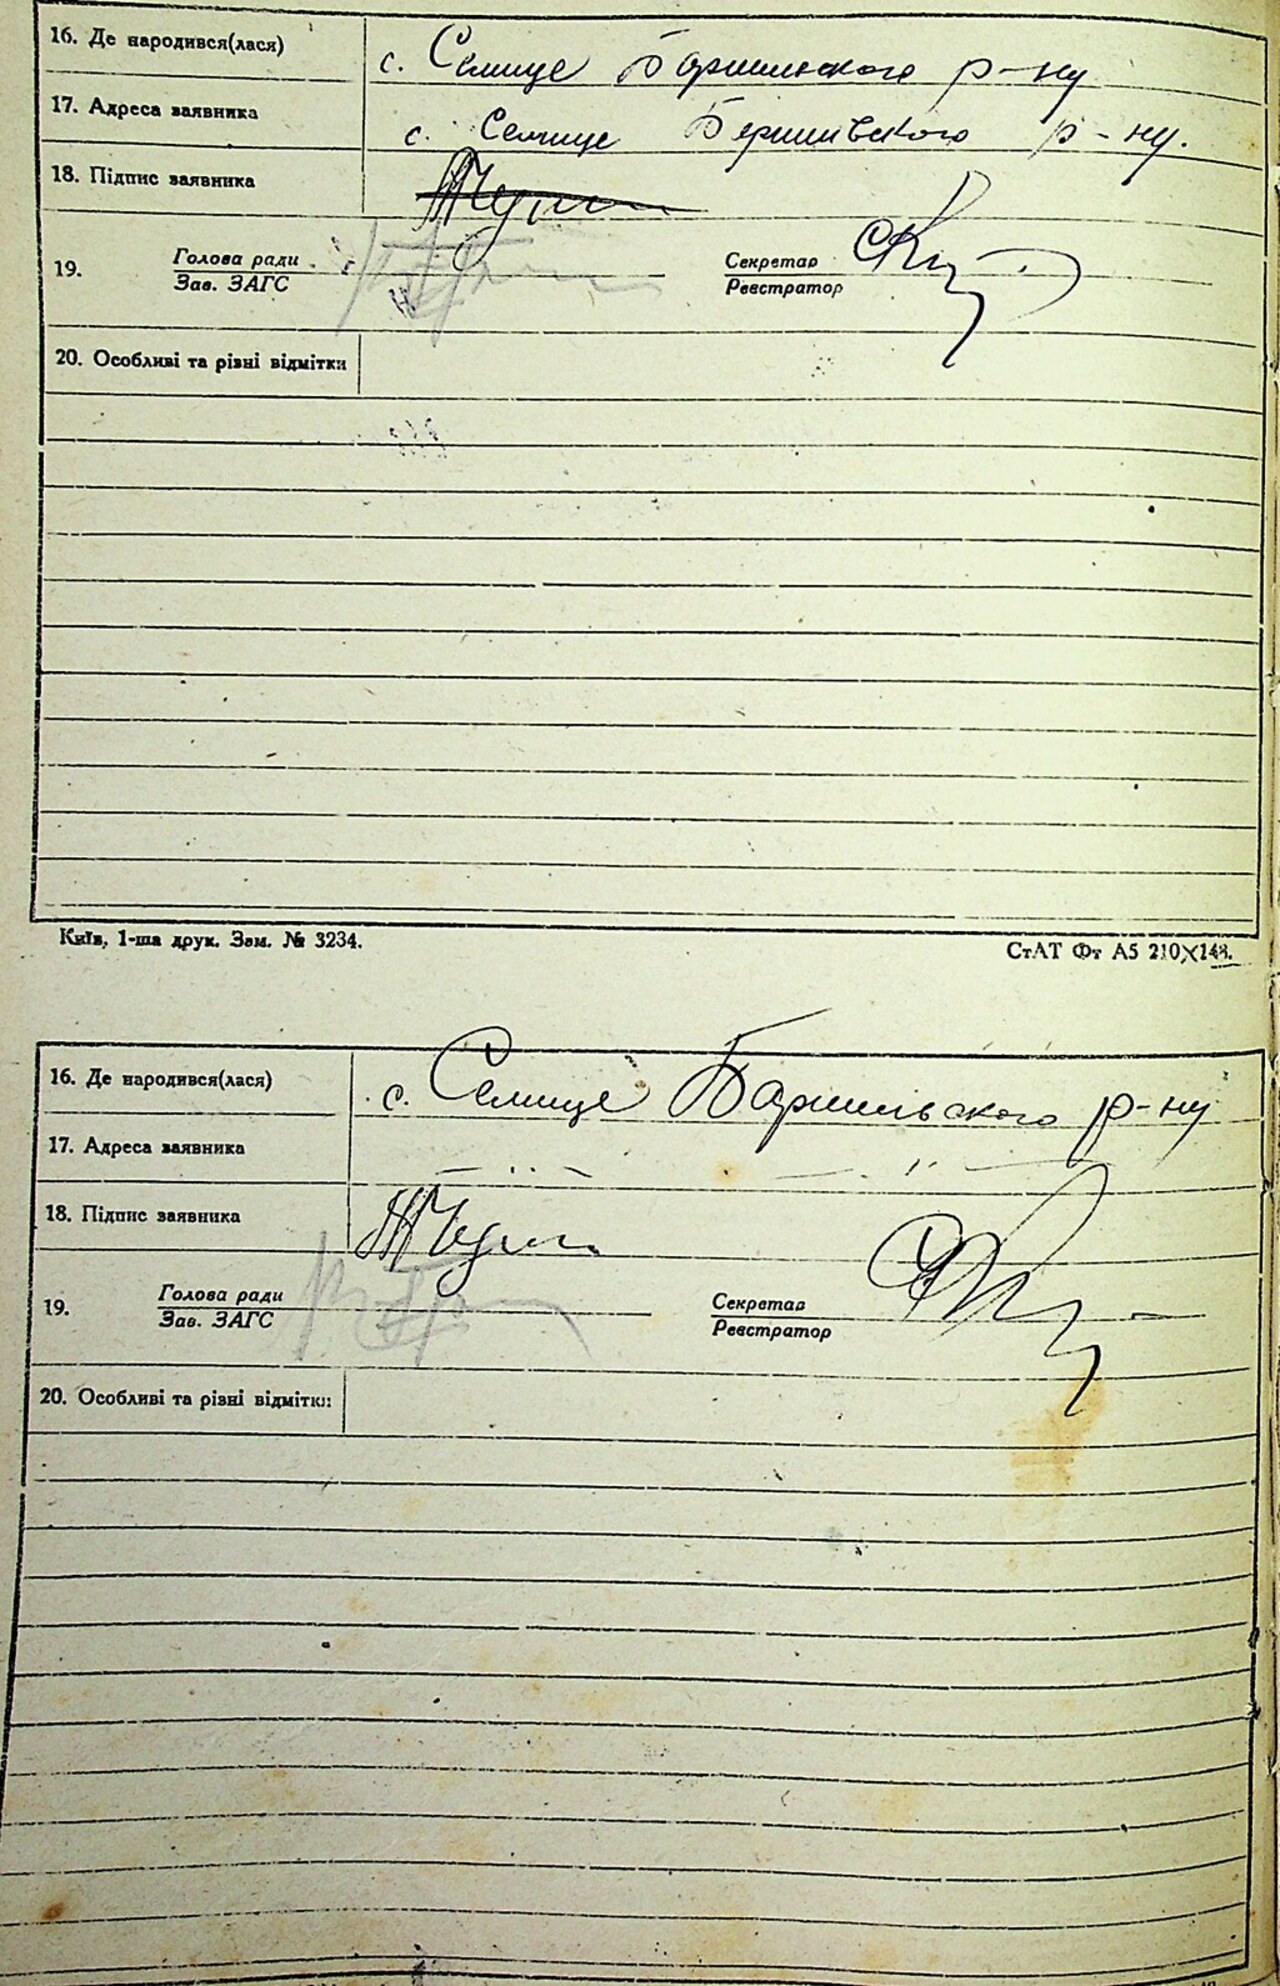 16. Де народився(лася)
с. Селище Баришивского р-ну
17. Адреса заявника
с. Селище Баришивского р-ну.
18. Підпис заявника
19. Голова ради Секретар
Зав. ЗАГС Реєстратор
20. Особливі та різні відмітки
Київ, 1-ша друк. Зам. № 3234.
СтАТ Фт А5 210×148.
16. Де народився(лася)
с. Селище Баришивского р-ну
17. Адреса заявника
— " — — " —
18. Підпис заявника
19. Голова ради Секретар
Зав. ЗАГС Реєстратор
20. Особливі та різні відмітки